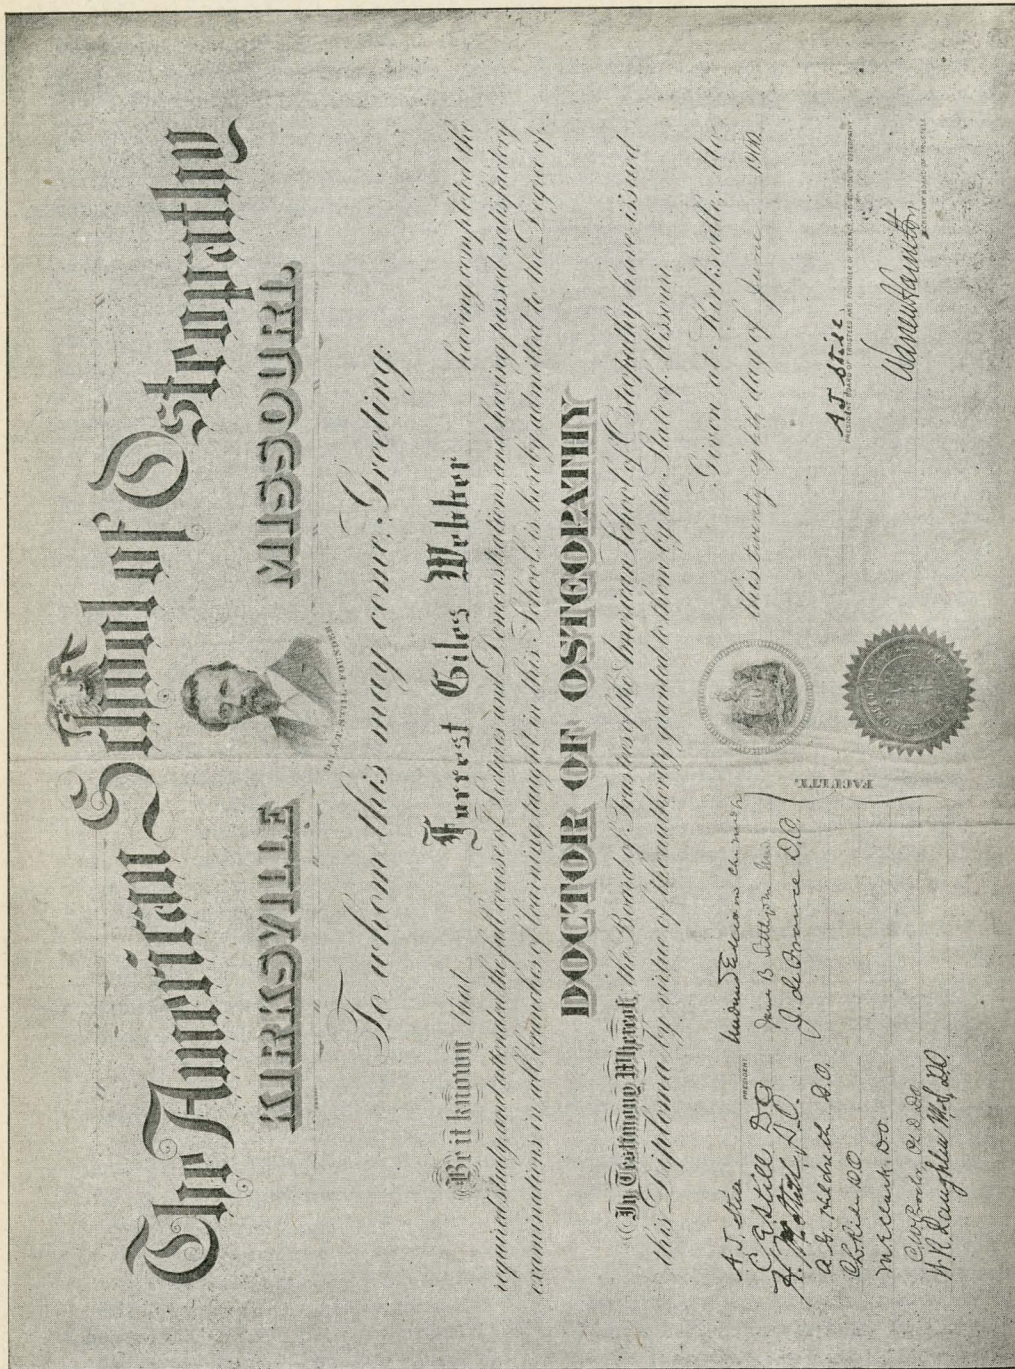 The American School of Osteopathy
KIRKSVILLE MISSOURI.
DR. A.T. STILL, FOUNDER
To whom this may come; Greeting:
Be it known that Forrest Giles Webber having completed the
required study, and attended the full course of Lectures and Demonstrations, and having passed satisfactory
examinations in all branches of learning taught in this School, is hereby admitted to the Degree of
DOCTOR OF OSTEOPATHY
In Testimony Whereof, the Board of Trustees of the American School of Osteopathy have issued
this Diploma by virtue of the authority granted to them by the State of Missouri.
Given at Kirksville, Mo.
this twenty eighth day of June
A.T. Still PRESIDENT
C E Still D O
A. G. Hildreth D.O.
M E Clark DO
W. R. Laughlin M.S, D.O.
FACULTY.
A.T. Still
PRESIDENT BOARD OF TRUSTEES AND FOUNDER OF SCIENCE AND SCHOOL OF OSTEOPATHY
Warren Hamilton
SECRETARY BOARD OF TRUSTEES